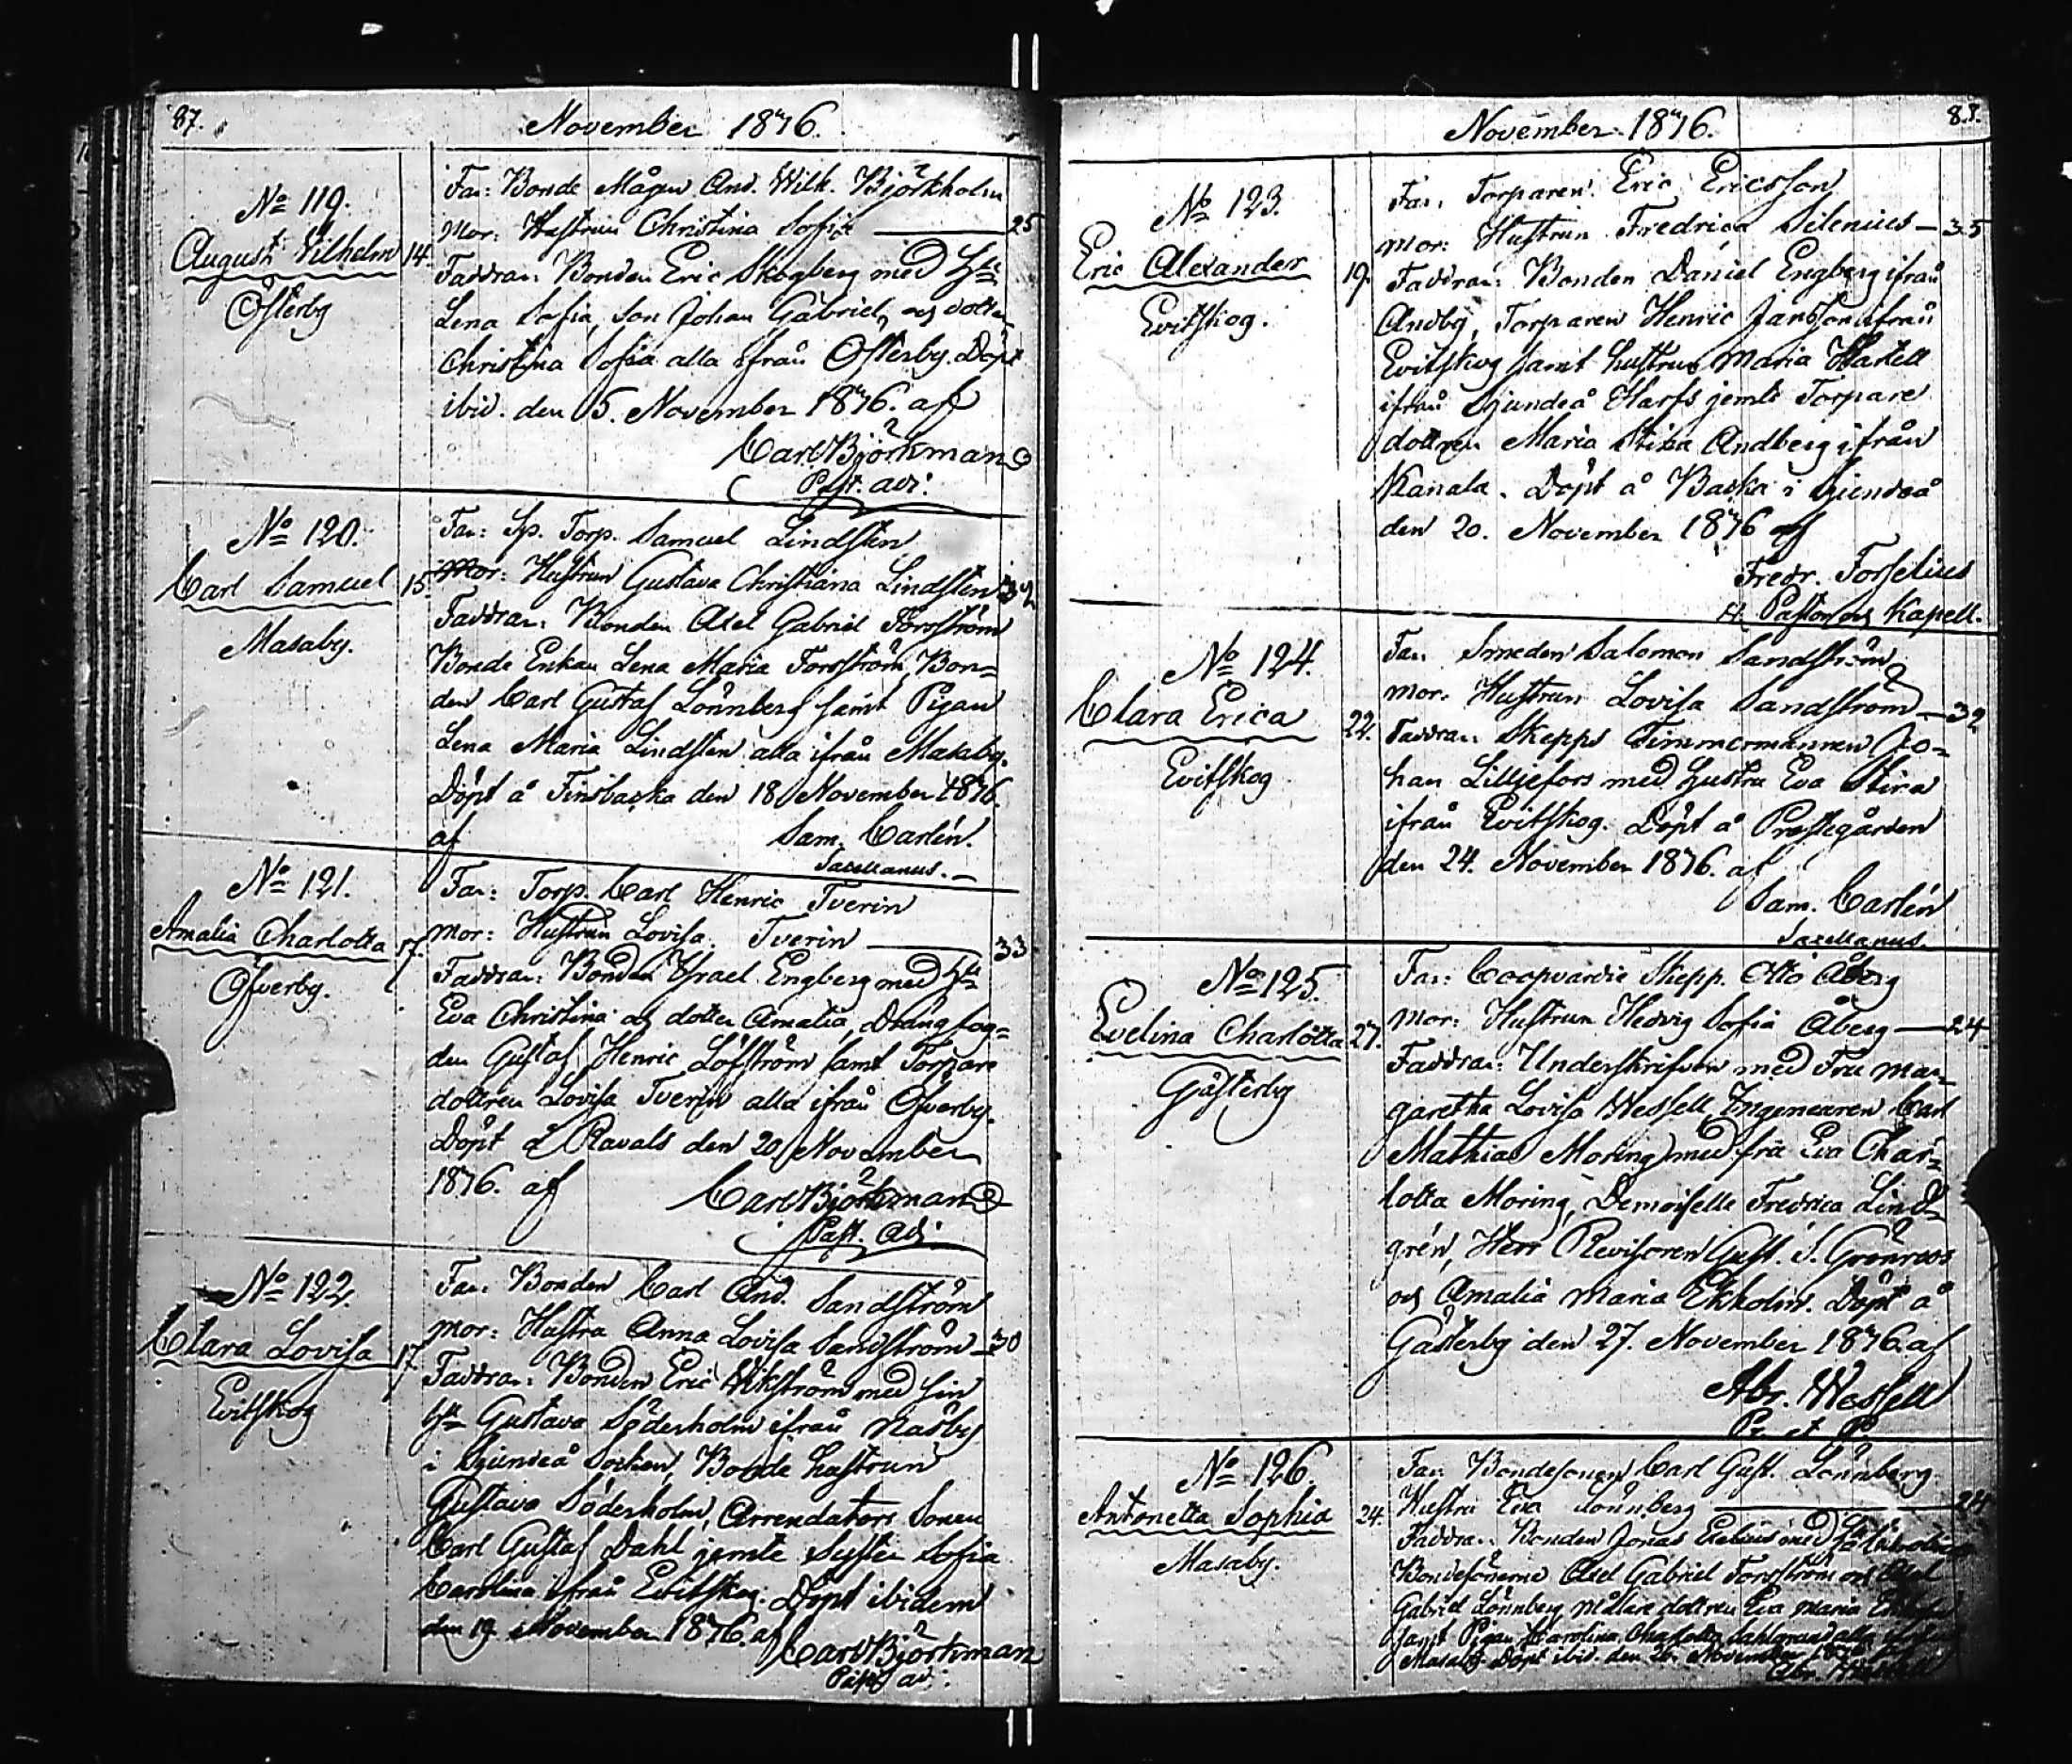 87.
November 1876.
No 119.
August Vilhelm 14.
Österby
Far: Bonde Mågen And. Wilh. Björkholm
Mor: Hustrun Christina Sofia — 25
Faddrar: Bonden Eric Skogberg med Hu
Lena Sofia, son Johan Gabriel, och dotter
Christina Sofia alla ifrån Österby. Döpt
ibid. den 15. November 1876. af
Carl Björkman
Past. adj.
No 120.
Carl Samuel 15.
Masaby.
Far: Sp. Torp. Samuel Lindsten
Mor: Hustrun Gustava Christiana Lindsten
Faddrar: Bonden Axel Gabriel Forsström
Bonde Enkan Lena Maria Forsström, Bon-
den Carl Gustaf Lönnberg samt Pigan
Lena Maria Lindsten alla ifrån Masaby.
Döpt å Finsbacka den 18 November 1876.
af Sam. Carlén.
Sacellanus.
No 121.
Amalia Charlotta 17.
Öfverby.
Far: Torp. Carl Henric Tverin
Mor: Hustrun Lovisa Tverin — 33
Faddrar: Bonden Israel Engberg med Hu
Eva Christina och dotter Amalia, Dräng Log-
den Gustaf Henric Löfström samt Torpare
dottren Lovisa Tverin alla ifrån Öfverby.
Döpt å Ravals den 20 November
1876. af Carl Björkman
Past. Adj.
No 122.
Clara Lovisa 17.
Evitskog
Far: Bonden Carl And. Sandström
Mor: Hustru Anna Lovisa Sandström — 30
Faddrar: Bonden Eric Wikström med sin
hu Gustava Söderholm ifrån Näsby
i Sjundeå Socken, Bonde hustrun
Gustava Söderholm, Arrendators Sonen
Carl Gustaf Dahl jemte Syster Sofia
Carolina ifrån Evitskog. Döpt ibidem
den 19 November 1876. af
Carl Björkman
Past. adj.
November 1876.
No 123.
Eric Alexander 19.
Evitskog.
Far: Torparen Eric Ericsson
Mor: Hustrun Fredrica Silenius — 35
Faddrar: Bonden Daniel Engberg ifrån
Andby, Torparen Henric Jansson ifrån
Evitskog samt hustrun Maria
ifrån Sjundeå Harfs jemte Torpare
dottren Maria Stina Andberg ifrån
Kanala. Döpt å Backa i Sjundeå
den 20. November 1876 af
Fredr. Forselius
Pastor och Kapell.
No 124.
Clara Erica 22.
Evitskog
Far: Smeden Salomon Sandström
Mor: Hustrun Lovisa Sandström — 32
Faddrar: Skepps Timmermannen Jo-
han Lilljefors med hustru Eva Stina
ifrån Evitskog. Döpt å Prestegården
den 24. November 1876. af
Sam. Carlén
Sacellanus.
No 125.
Evelina Charlotta 27.
Gåsterby
Far: Coopvardie Skepp. Otto Åberg
Mor: Hustrun Hedvig Sofia Åberg — 24
Faddrar: Underskrifven med Fru Mar-
garetha Lovisa Wessell, Ingeneuren Carl
Mathias Moring med fru Eva Char-
lotta Moring, Demoiselle Fredrica Lind-
grén, Herr Revisoren Gust. S. Grönroos
och Amalia Maria Ekholm. Döpt å
Gåsterby den 27. November 1876. af
Abr. Wessell
P. et P.
No 126.
Antonetta Sophia 24.
Masaby.
Far: Bondesonen Carl Gust. Lönnberg
Hustru Eva Lönnberg — 24
Faddrar: Bonden Jonas med
Bondesönerne Axel Gabriel Forsström och Axel
Gabriel Lönnberg Mölnare dottren Eva Maria
samt Pigan Carolina Charlotta alla
Masaby Döpt ibid. den 26. November
Abr. Wessell